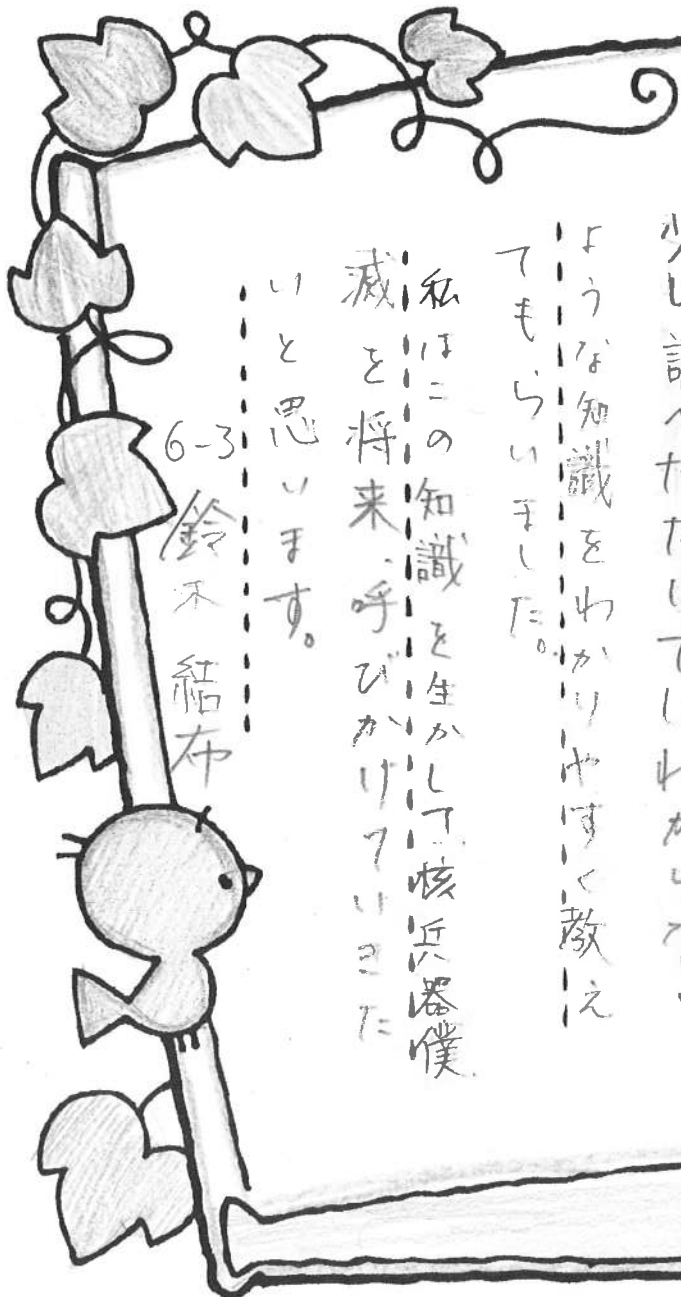 少し調べただけ
ような知識をわかりやすく教え
てもらいました。
私はこの知識を生かして核兵器僕
滅を将来、呼びかけていきた
いと思います。
6-3 鈴木 結布